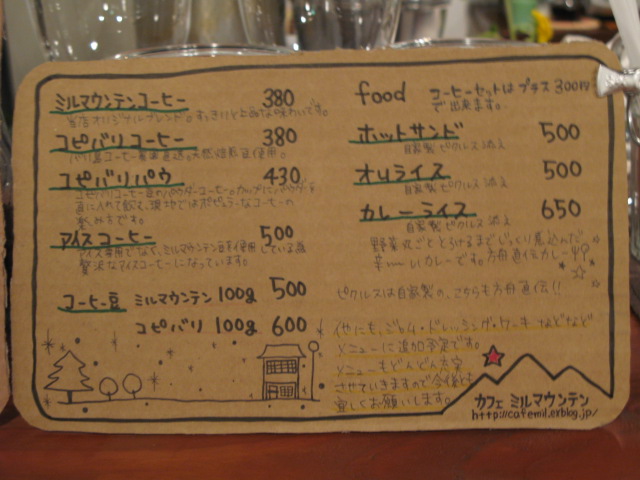 ミルマウンテンコーヒー 380
当店オリジナルブレンド。すっきりと上品な味わいです。
コピバリコーヒー 380
バリ島コーヒー農園直送の天然焙煎豆使用。
コピバリパウ 430
コピバリコーヒー豆のパウダーコーヒー。カップにパウダーを
直に入れて飲む、現地ではポピュラーなコーヒーの
楽しみ方です。
アイスコーヒー 500
アイス専用でなく、ミルマウンテン豆を使用している為
贅沢なアイスコーヒーになっています。
コーヒー豆 ミルマウンテン 100g 500
コピバリ 100g 600
food コーヒーセットはプラス300円
で出来ます。
ホットサンド 500
自家製ピクルス添え
オムライス 500
自家製ピクルス添え
カレーライス 650
自家製ピクルス添え
野菜丸ごととろけるまでじっくり煮込んだ
辛〜いカレーです。方舟直伝カレー
ピクルスは自家製の、こちらも方舟直伝!!
他にも、ジャム・ドレッシング・ケーキなどなど
メニューに追加予定です。
メニューもどんどん充実
させていきますので今後とも
宜しくお願いします。
カフェ ミルマウンテン
http://cafemil.exblog.jp/